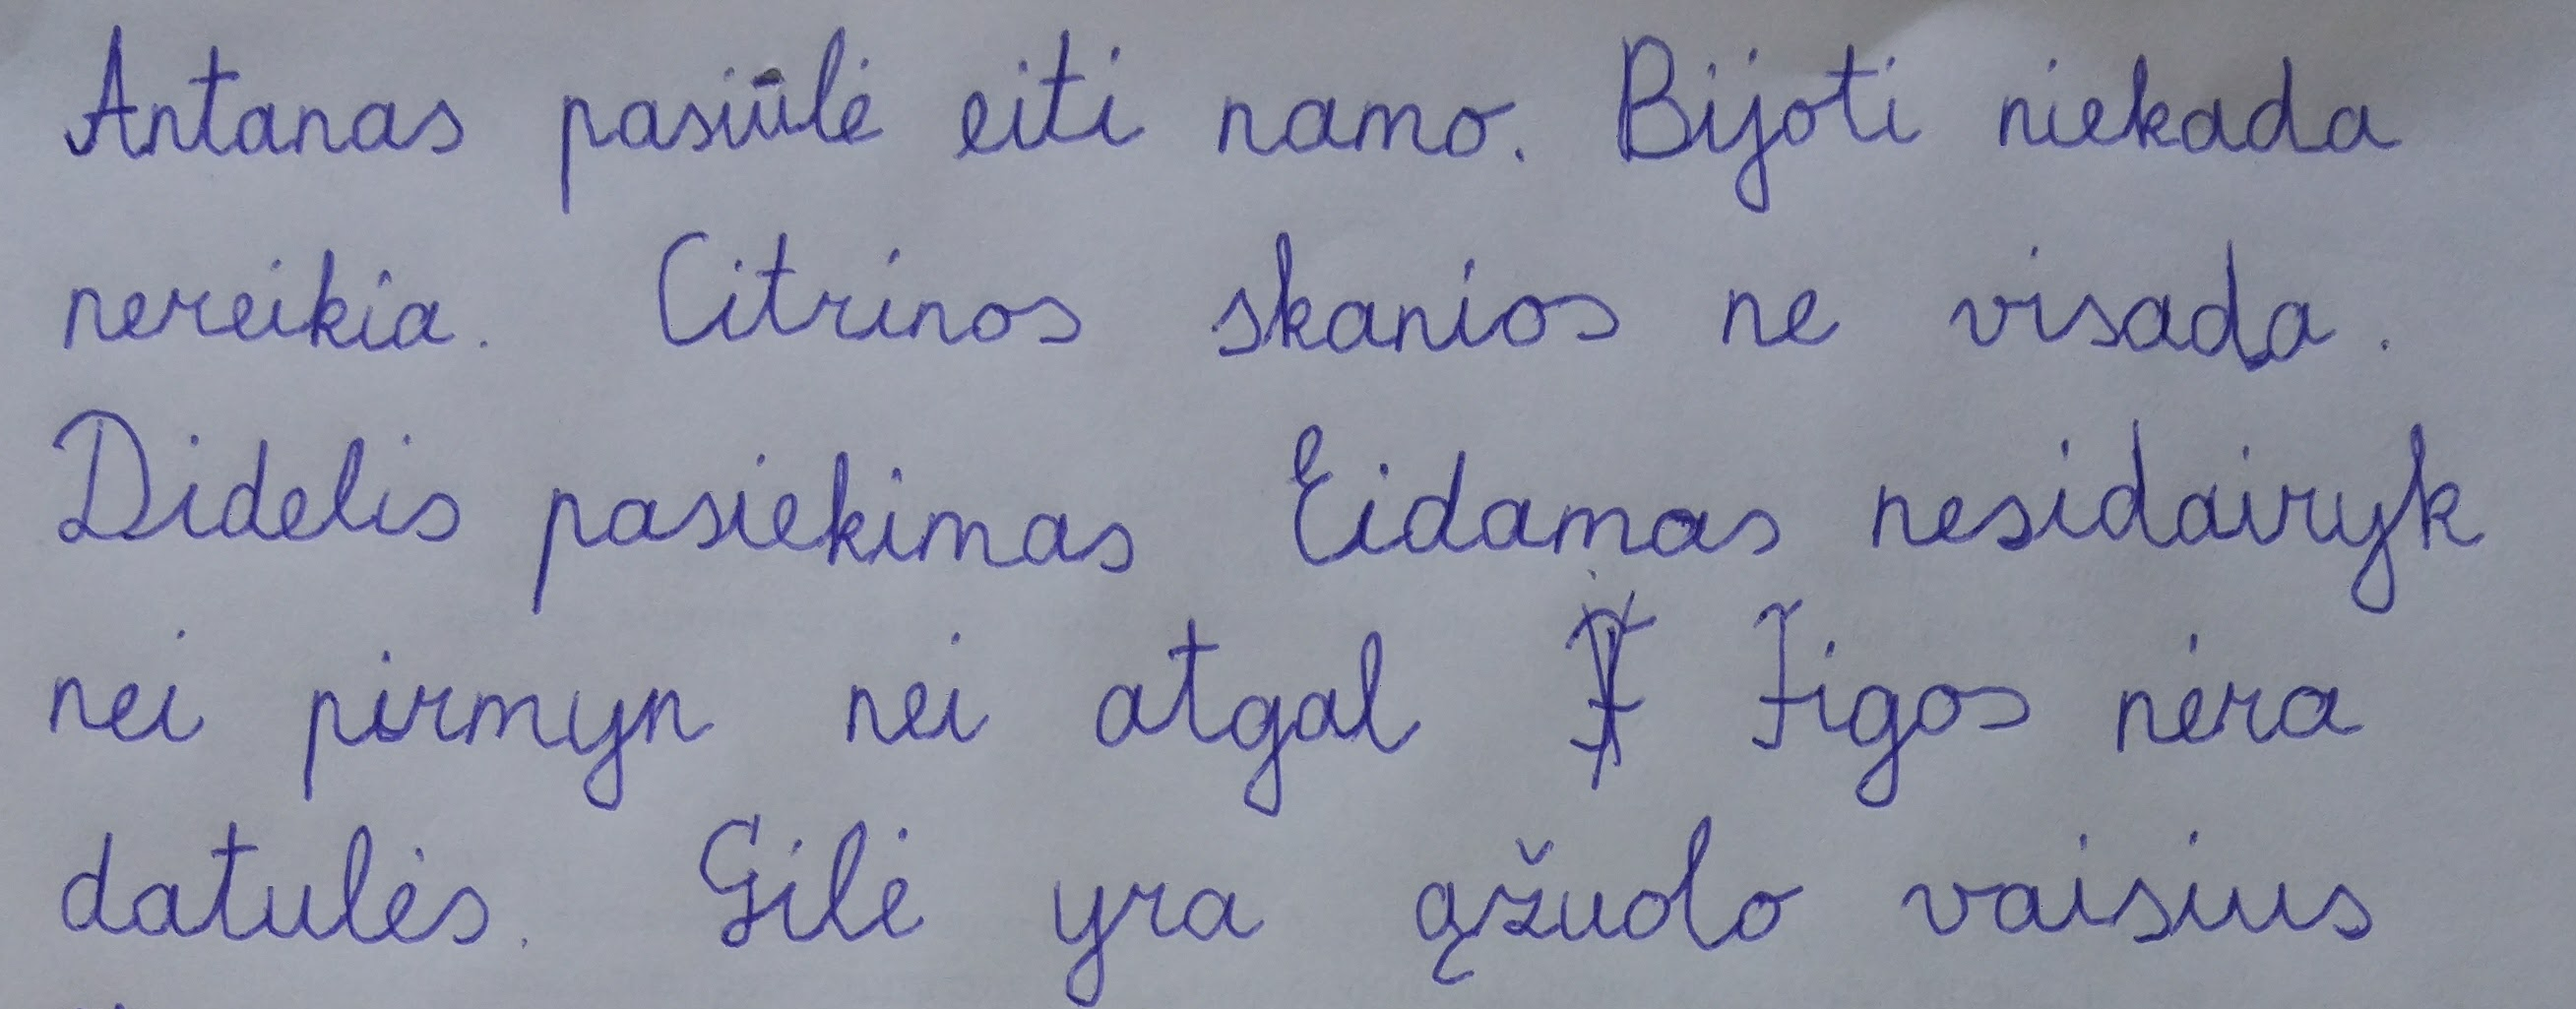 Antanas pasiūlė eiti namo. Bijoti niekada
nereikia. Citrinos skanios ne visada.
Didelis pasiekimas Eidamas nesidairyk
nei pirmyn nei atgal Figos nėra
datulės. Gilė yra ąžuolo vaisius